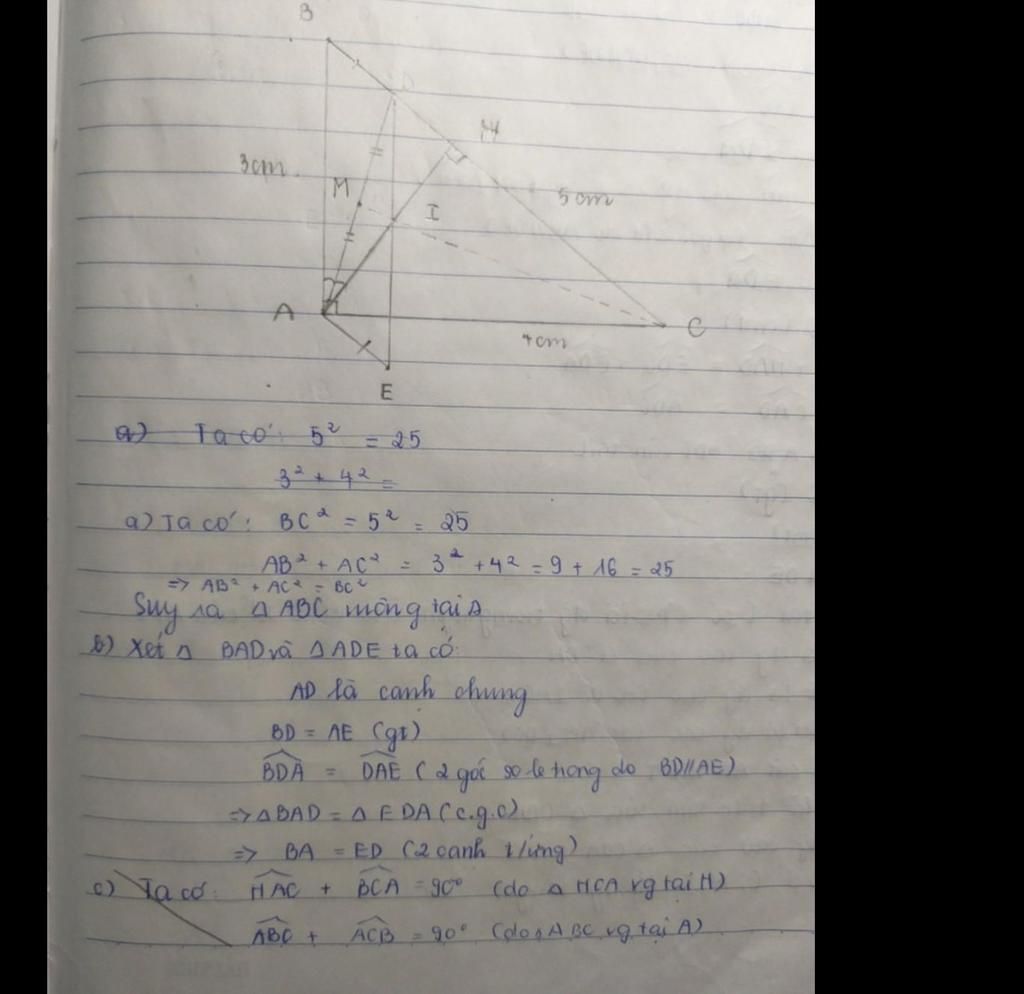 B
D
H
3cm
M
5cm
I
A
C
4cm
E
a) Ta có: 5² = 25
3² + 4² =
a) Ta có: BC² = 5² = 25
AB² + AC² = 3² + 4² = 9 + 16 = 25
=> AB² + AC² = BC²
Suy ra Δ ABC vuông tại A
b) Xét Δ BAD và Δ ADE ta có:
AD là cạnh chung
BD = AE (gt)
BDA = DAE (2 góc so le trong do BD//AE)
=> Δ BAD = Δ EDA (c.g.c)
=> BA = ED (2 cạnh t/ứng)
c) Ta có: HAC + BCA = 90° (do Δ HCA vg tại H)
ABC + ACB = 90° (do Δ ABC vg tại A)